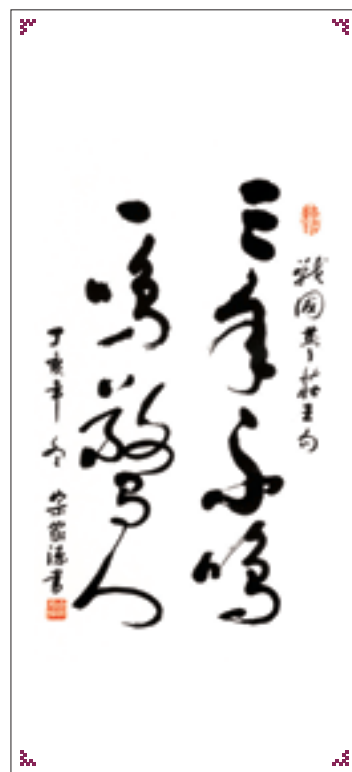 戰國楚莊王句
三年不鳴
一鳴驚人
丁亥年冬 書